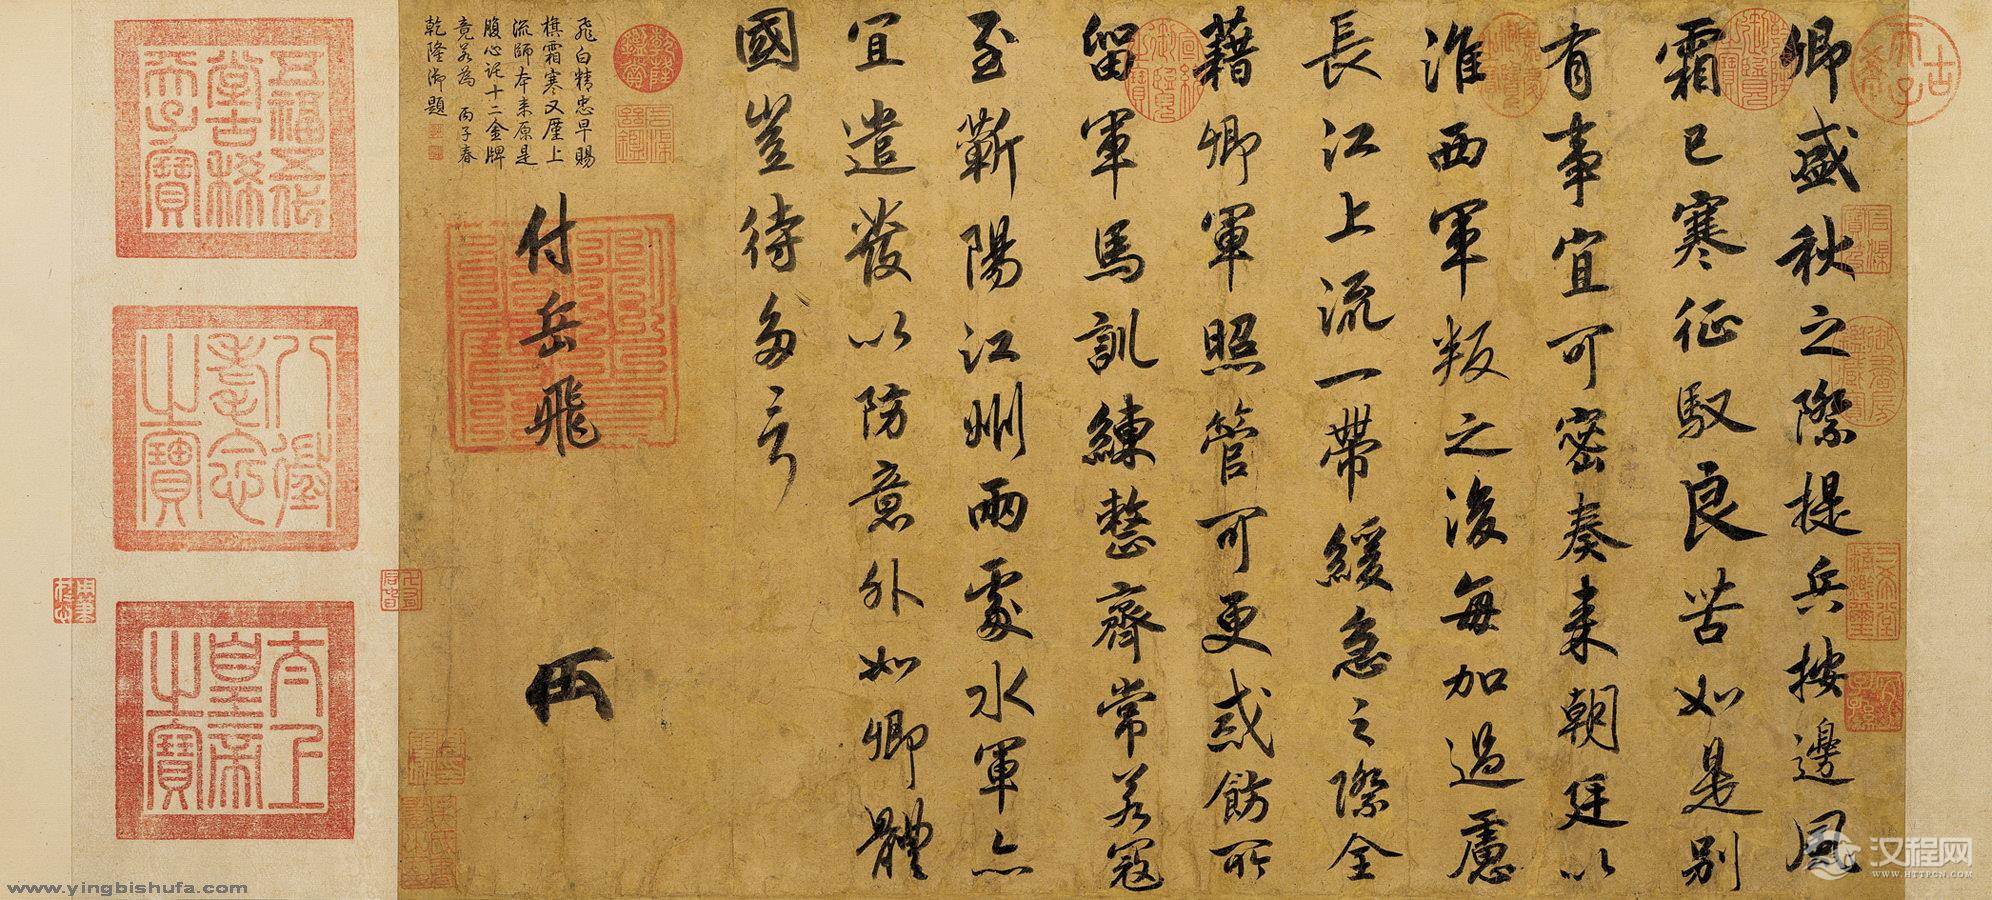 卿盛秋之際提兵按邊風
霜已寒征馭良苦如是別
有事宜可密奏來朝廷以
淮西軍叛之後每加過慮
長江上流一帶緩急之際全
藉卿軍照管可更戒飭所
留軍馬訓練整齊常若寇
至蘄陽江州兩處水軍亦
宜遣發以防意外如卿體
國豈待多言
付岳飛
飛白精忠早賜
旗霜寒又廑上
流師本來原是
腹心託十二金牌
竟若為 丙子春
乾隆御題
古希天子
乾隆御覽之寶
五福五代
堂古稀
天子寶
八徵
耄念
之寶
太上
皇帝
之寶
www.yingbishufa.com
汉程网
WWW.HTTPCN.COM